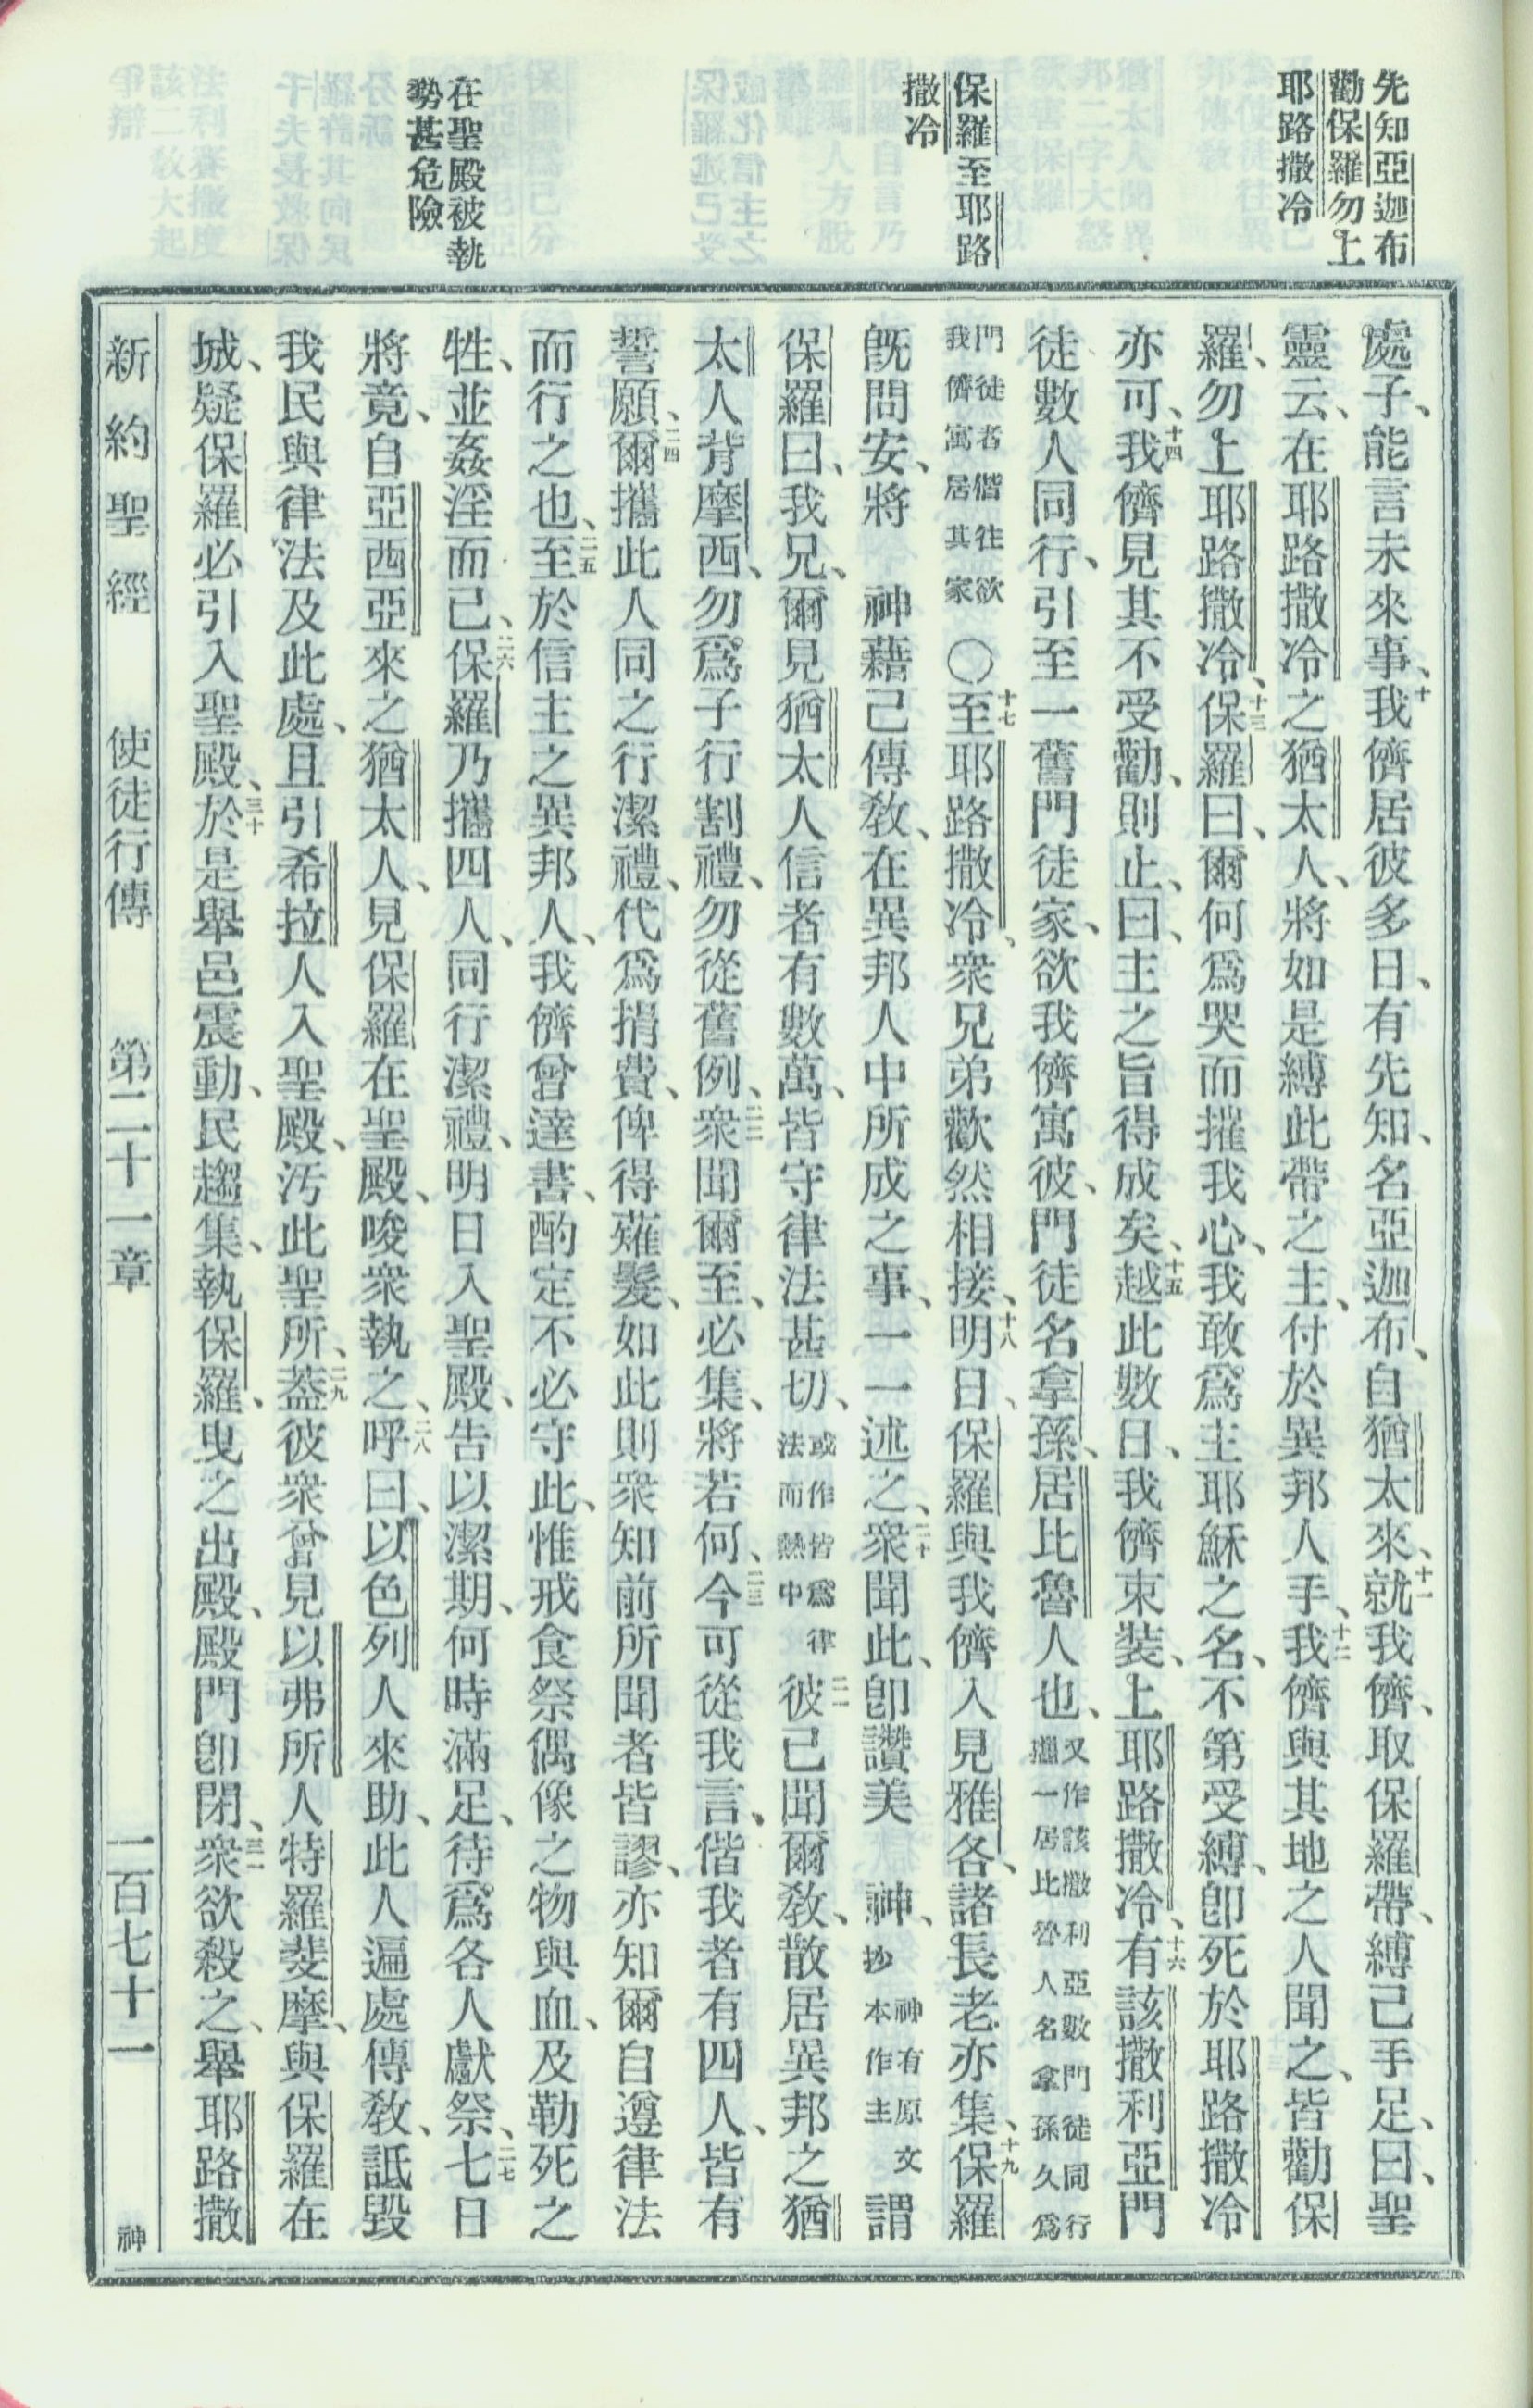 先知亞迦布
勸保羅勿上
耶路撒冷
保羅至耶路
撒冷
在聖殿被執
勢甚危險
處子、能言未來事、十我儕居彼多日、有先知、名亞迦布、自猶太來、十一就我儕、取保羅帶、縛己手足、曰、聖
靈云、在耶路撒冷之猶太人、將如是縛此帶之主、付於異邦人手、十二我儕與其地之人聞之、皆勸保
羅、勿上耶路撒冷、十三保羅曰、爾何爲哭而摧我心、我敢爲主耶穌之名、不第受縛、卽死於耶路撒冷
亦可、十四我儕見其不受勸、則止、曰、主之旨得成矣、十五越此數日、我儕束裝、上耶路撒冷、十六有該撒利亞門
徒數人同行、引至一舊門徒家、欲我儕寓彼、門徒名拿孫、居比魯人也、又作該撒利亞數門徒同行攜一居比魯人名拿孫久爲
門徒者偕往欲我儕寓居其家 〇十七至耶路撒冷、衆兄弟歡然相接、十八明日、保羅與我儕入見雅各、諸長老亦集、十九保羅
旣問安、將 神藉己傳教、在異邦人中所成之事、一一述之、二十衆聞此、卽讚美 神、神有原文抄本作主 謂
保羅曰、我兄、爾見猶太人信者有數萬、皆守律法甚切、或作皆爲律法而熱中 二一彼已聞爾教、散居異邦之猶
太人背摩西、勿爲子行割禮、勿從舊例、二二衆聞爾至、必集、將若何、二三今可從我言、偕我者有四人、皆有
誓願、二四爾攜此人同之行潔禮、代爲捐費、俾得薙髮、如此則衆知前所聞者皆謬、亦知爾自遵律法
而行之也、二五至於信主之異邦人、我儕曾達書、酌定不必守此、惟戒食祭偶像之物與血、及勒死之
牲、並姦淫而已、二六保羅乃攜四人、同行潔禮、明日入聖殿、告以潔期、何時滿足、待爲各人獻祭、二七七日
將竟、自亞西亞來之猶太人、見保羅在聖殿、唆衆執之、二八呼曰、以色列人來助、此人遍處傳教、詆毀
我民與律法及此處、且引希拉人入聖殿、汚此聖所、二九蓋彼衆曾見以弗所人特羅斐摩、與保羅在
城、疑保羅必引入聖殿、三十於是舉邑震動、民趨集、執保羅、曳之出殿、殿門卽閉、三一衆欲殺之、舉耶路撒
新約聖經 使徒行傳 第二十一章 一百七十一 神